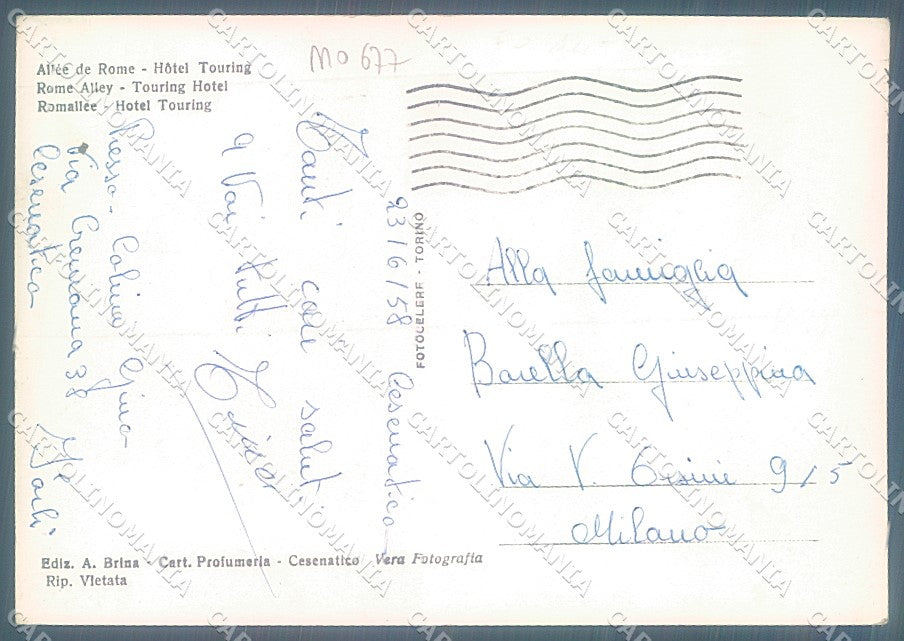 Allée de Rome - Hôtel Touring
Rome Alley - Touring Hotel
Romallee - Hotel Touring
MO 677
23/6/58 Cesenatico
Tanti cari saluti
a Voi tutti
Presso - Gina
Via 38
Cesenatico
FOTOCELERE - TORINO
Alla famiglia
Barella Giuseppina
Via V. 9/5
Milano
Ediz. A. Brina - Cart. Profumeria - Cesenatico Vera Fotografia
Rip. Vietata
CARTOLINOMANIA